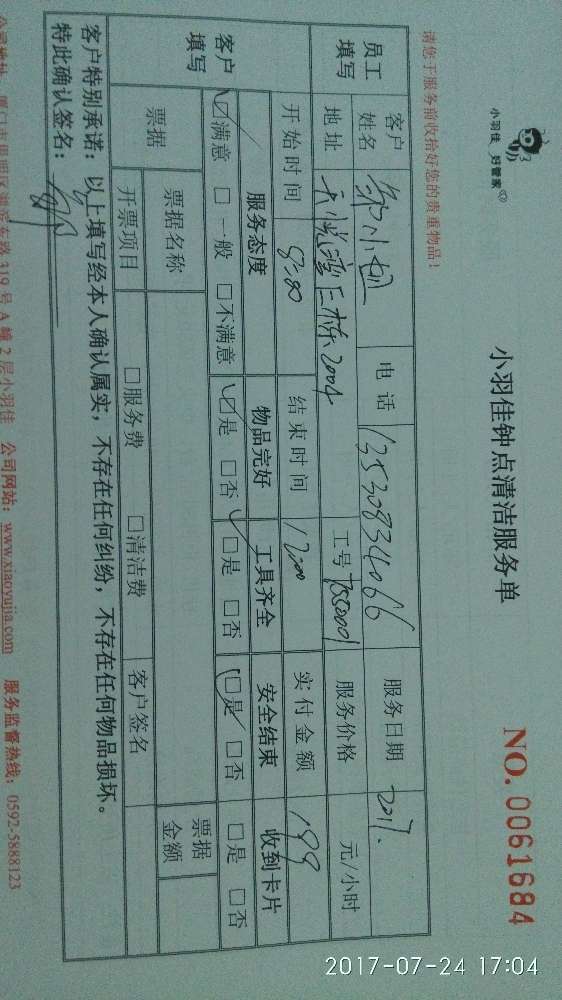 小羽佳 好管家
小羽佳钟点清洁服务单
NO.0061684
请您于服务前收拾好您的贵重物品！
员工填写 客户姓名 电话 13530834066 服务日期 2017.
地址 2004 工号 服务价格 元/小时
开始时间 8:00 结束时间 12:00 实付金额 199
客户填写 服务态度 物品完好 工具齐全 安全结束 收到卡片
☑满意 □一般 □不满意 ☑是 □否 □是 □否 ☑是 □否 □是 □否
票据 票据名称 票据金额
开票项目 □服务费 □清洁费 客户签名
客户特别承诺：以上填写经本人确认属实，不存在任何纠纷，不存在任何物品损坏。
特此确认签名：
319号A幢2层小羽佳 公司网站：www.xiaoyujia.com 服务监督热线：0592-5888123
2017-07-24 17:04